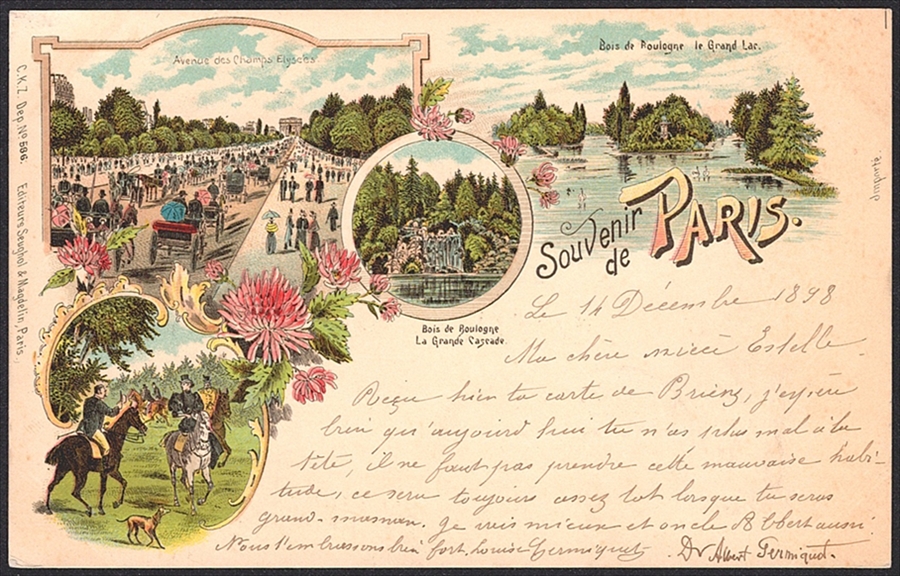 Avenue des Champs Elysées
Bois de Boulogne le Grand Lac.
C.K.Z. Dep. Nº 596.
Editeurs Seughol & Magdelin, Paris.
Souvenir
de
PARIS.
Bois de Boulogne
La Grande Cascade
Le 14 Décembre 1898
Ma chère nièce Estelle.
Reçu bien ta carte de Brienz, j'espère
bien qu'aujourd'hui tu n'as plus mal à la
tête, il ne faut pas prendre cette mauvaise habi-
tude, ce sera toujours assez tot lorsque tu seras
grand-maman. Je vais mieux et oncle Albert aussi
Nous t'embrassons bien fort, Louise Germiquet. Dr Albert Germiquet.